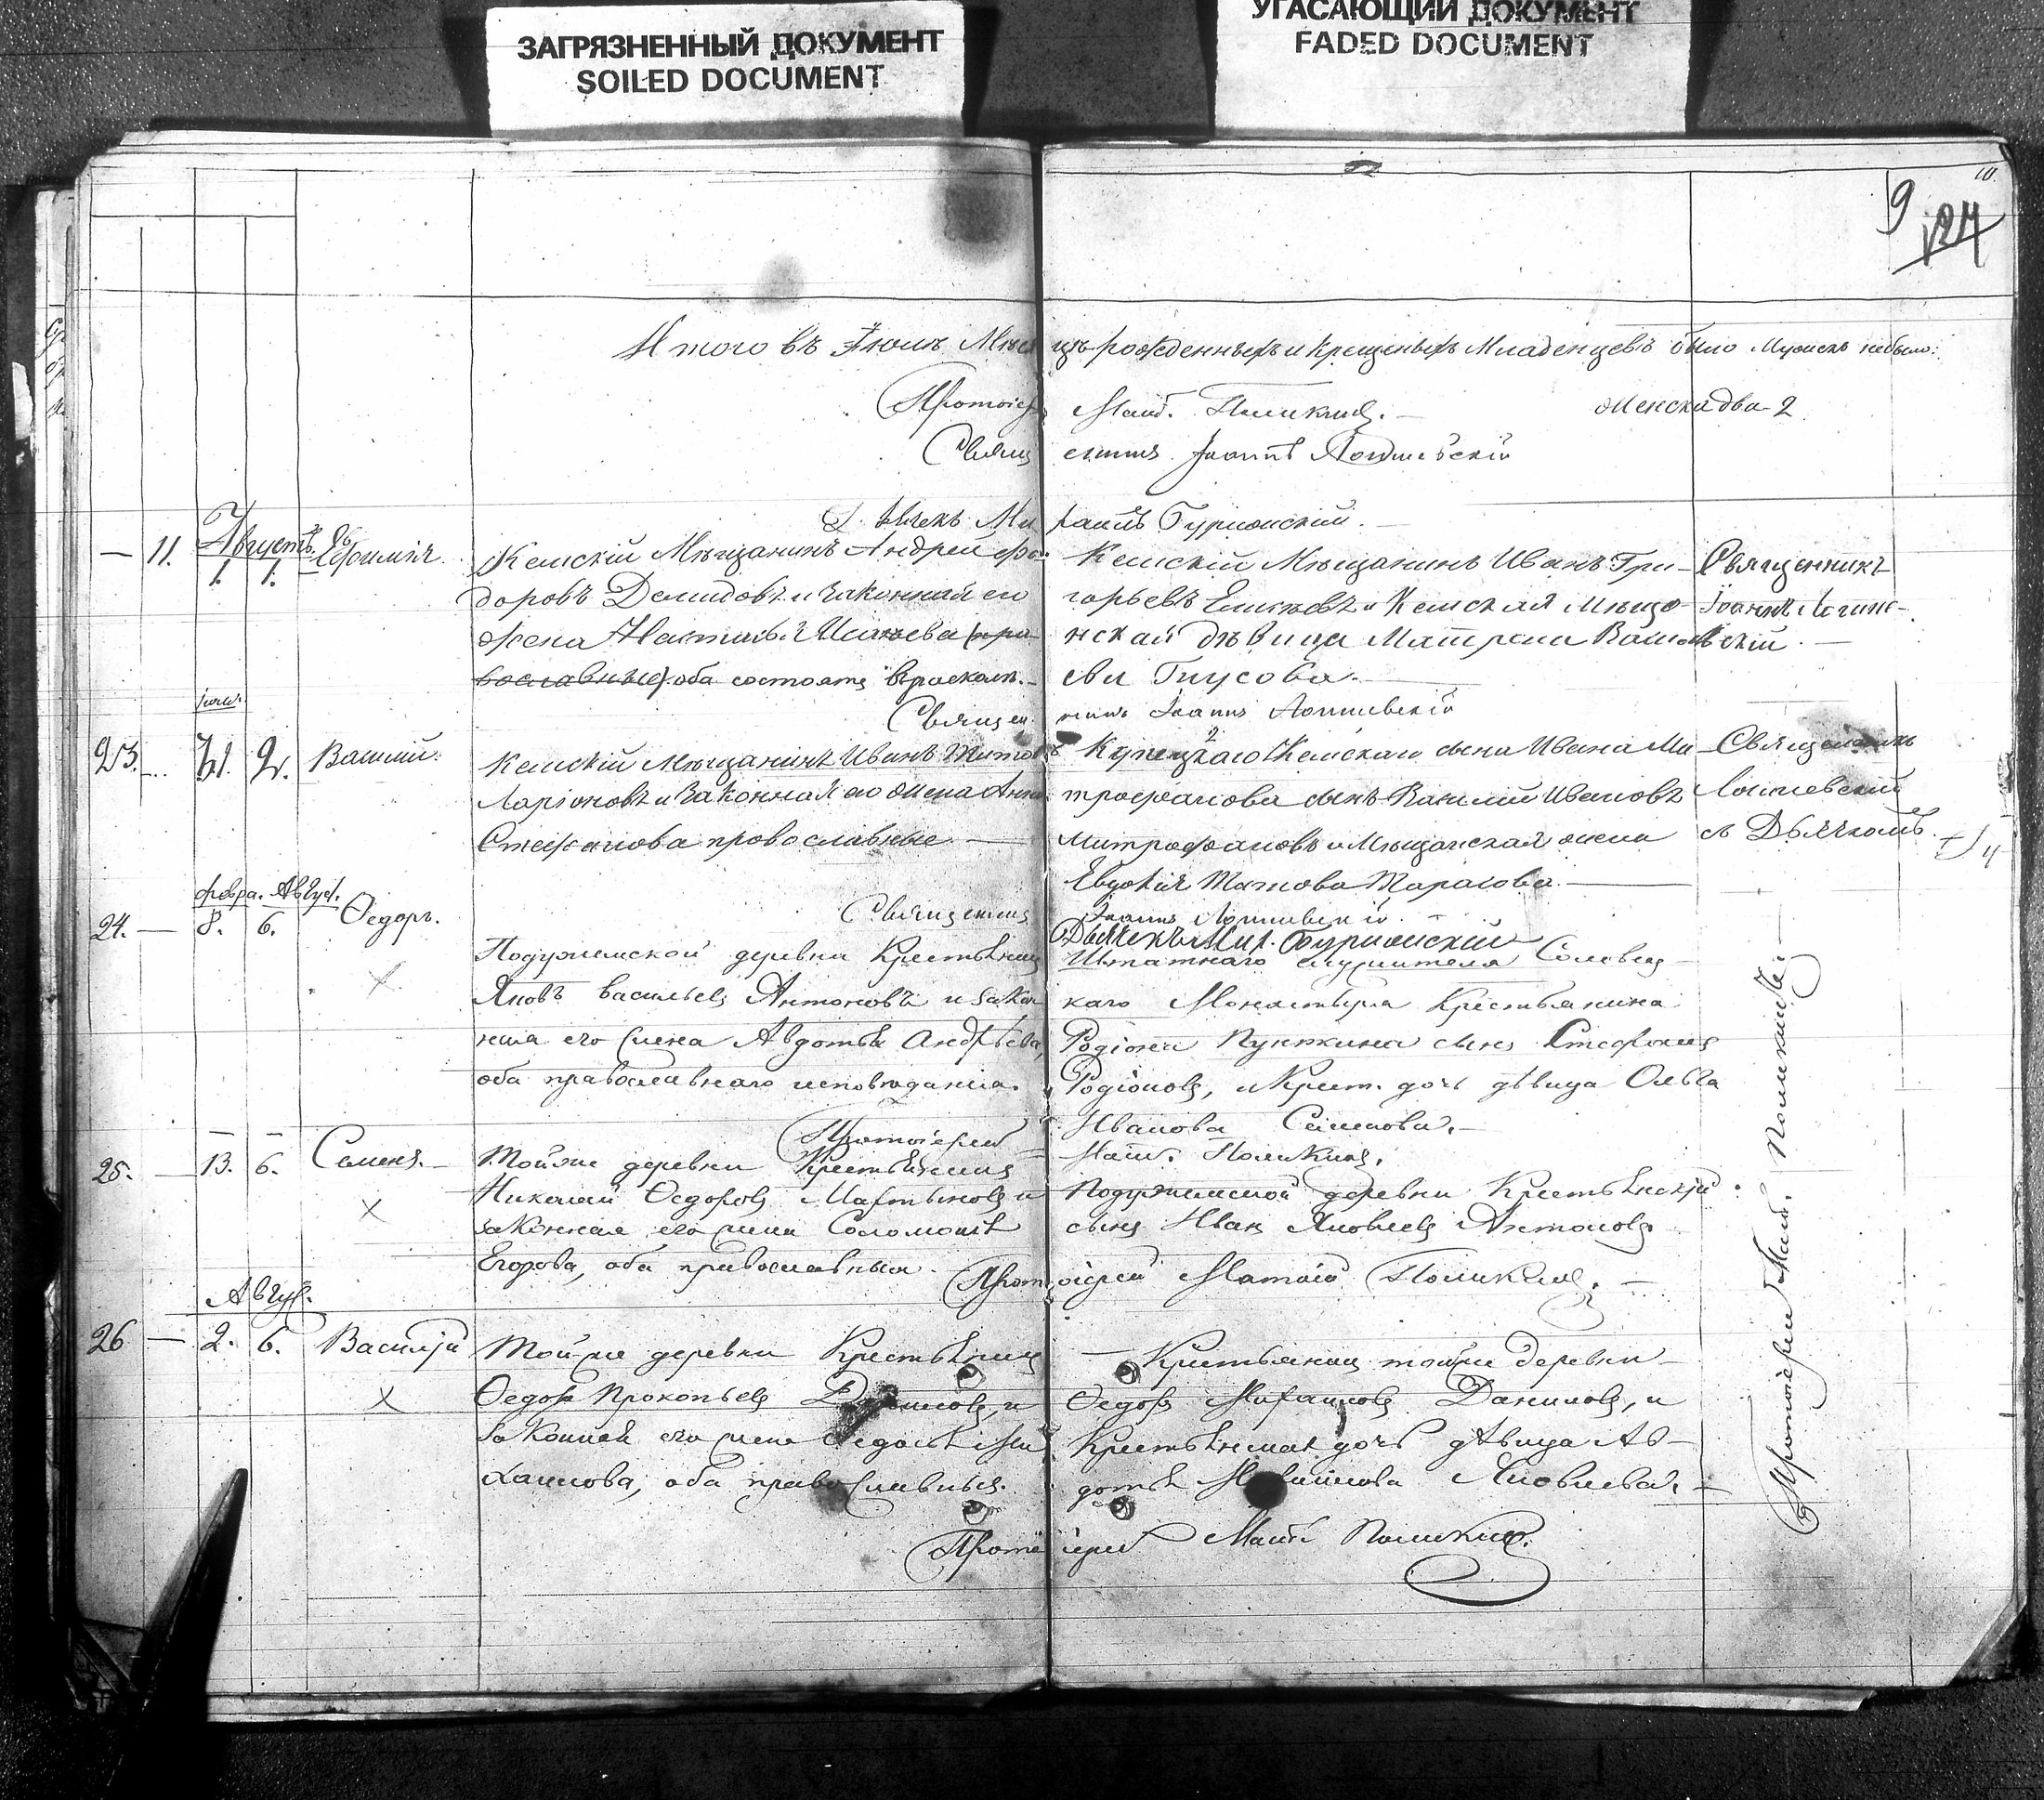 ЗАГРЯЗНЕННЫЙ ДОКУМЕНТ
SOILED DOCUMENT
УГАСАЮЩИЙ ДОКУМЕНТ
FADED DOCUMENT
10.
9
Итого въ Іюлѣ Мѣсяцѣ рожденныхъ и крещеныхъ Младенцевъ было Мужескъ небыло:
Протоіерей Матѳ. Поликинъ. Женска два 2
Священникъ Іоаннъ
Августъ
11. 1. 1.
Кемскій Мѣщанинъ Андрей Ѳео-
доровъ Демидовъ и законная его
жена Наталья (пра-
вославные) оба состоятъ въ расколѣ.
Кемскій Мѣщанинъ Иванъ Гри-
горьевъ и Кемская Мѣща-
нская дѣвица Матрена
ева Гнусова.
Священникъ
Іоаннъ
Священникъ Іоаннъ
23. 31. 2. Василій.
Кемскій Мѣщанинъ Иванъ Титовъ
Ларіоновъ и законная его жена Анна
Стефанова православные
Купецкаго Кемскаго сына Ивана Ми-
трофанова сынъ Василий Ивановъ
Митрофановъ и Мѣщанская жена
Евдокія Титова Тарасова
Священникъ
съ Дьячкомъ.
Священникъ Іоаннъ
февра. Август.
24. 8. 6. Ѳедоръ.
Подужемской деревни Крестьянинъ
Яковъ Васильевъ Антоновъ и закон
ная его жена Авдотья Андрѣева,
оба православнаго исповѣданія.
Штатнаго служителя Соловец-
каго Монастыря Крестьянина
Родіона Пунткина сынъ Стефанъ
Родіоновъ, и Крест. дочь дѣвица Ольга
Иванова Семенова.
Протоіерей Матѳ. Поликинъ.
25. 13. 6. Семенъ.
Тойже деревни Крестьянинъ
Николай Ѳедоровъ Мартыновъ и
законная его жена Соломонія
Егорова, оба православныя.
Подужемской деревни Крестьянскій
сынъ Иванъ Яковлевъ Антоновъ
Протоіерей Матѳій Поликинъ.
Авгус.
26 2. 6. Василій
Тойже деревни Крестьянинъ
Ѳедоръ Прокопьевъ Даниловъ, и
законная его жена Ѳедосья Ми
хаилова, оба православныя.
Крестьянинъ тойже деревни
Ѳедоръ Михаиловъ Даниловъ, и
Крестьянская дочь дѣвица Ав-
дотья Яковлева.
Протоіерей Матѳ. Поликинъ.
Протоіерей Матѳ. Поликинъ.